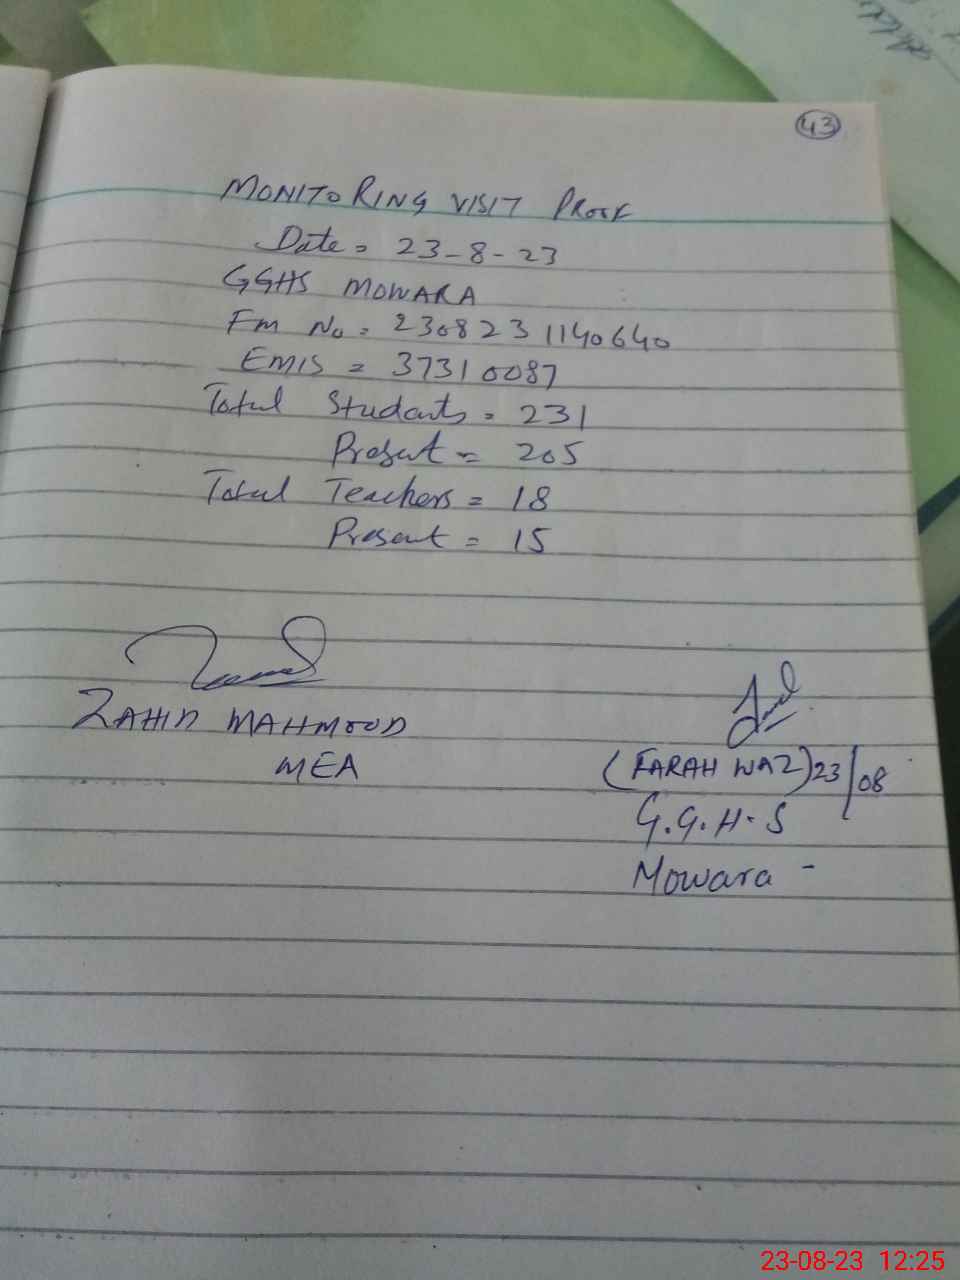 43
MONITORING VISIT PROOF
Date = 23-8-23
GGHS MOWARA
Fm No = 2308231140640
EMIS = 37310087
Total Students = 231
Present = 205
Total Teachers = 18
Present = 15
ZAHID MAHMOOD
MEA
(FARAH NAZ) 23/08
G.G.H.S
Mowara -
23-08-23 12:25